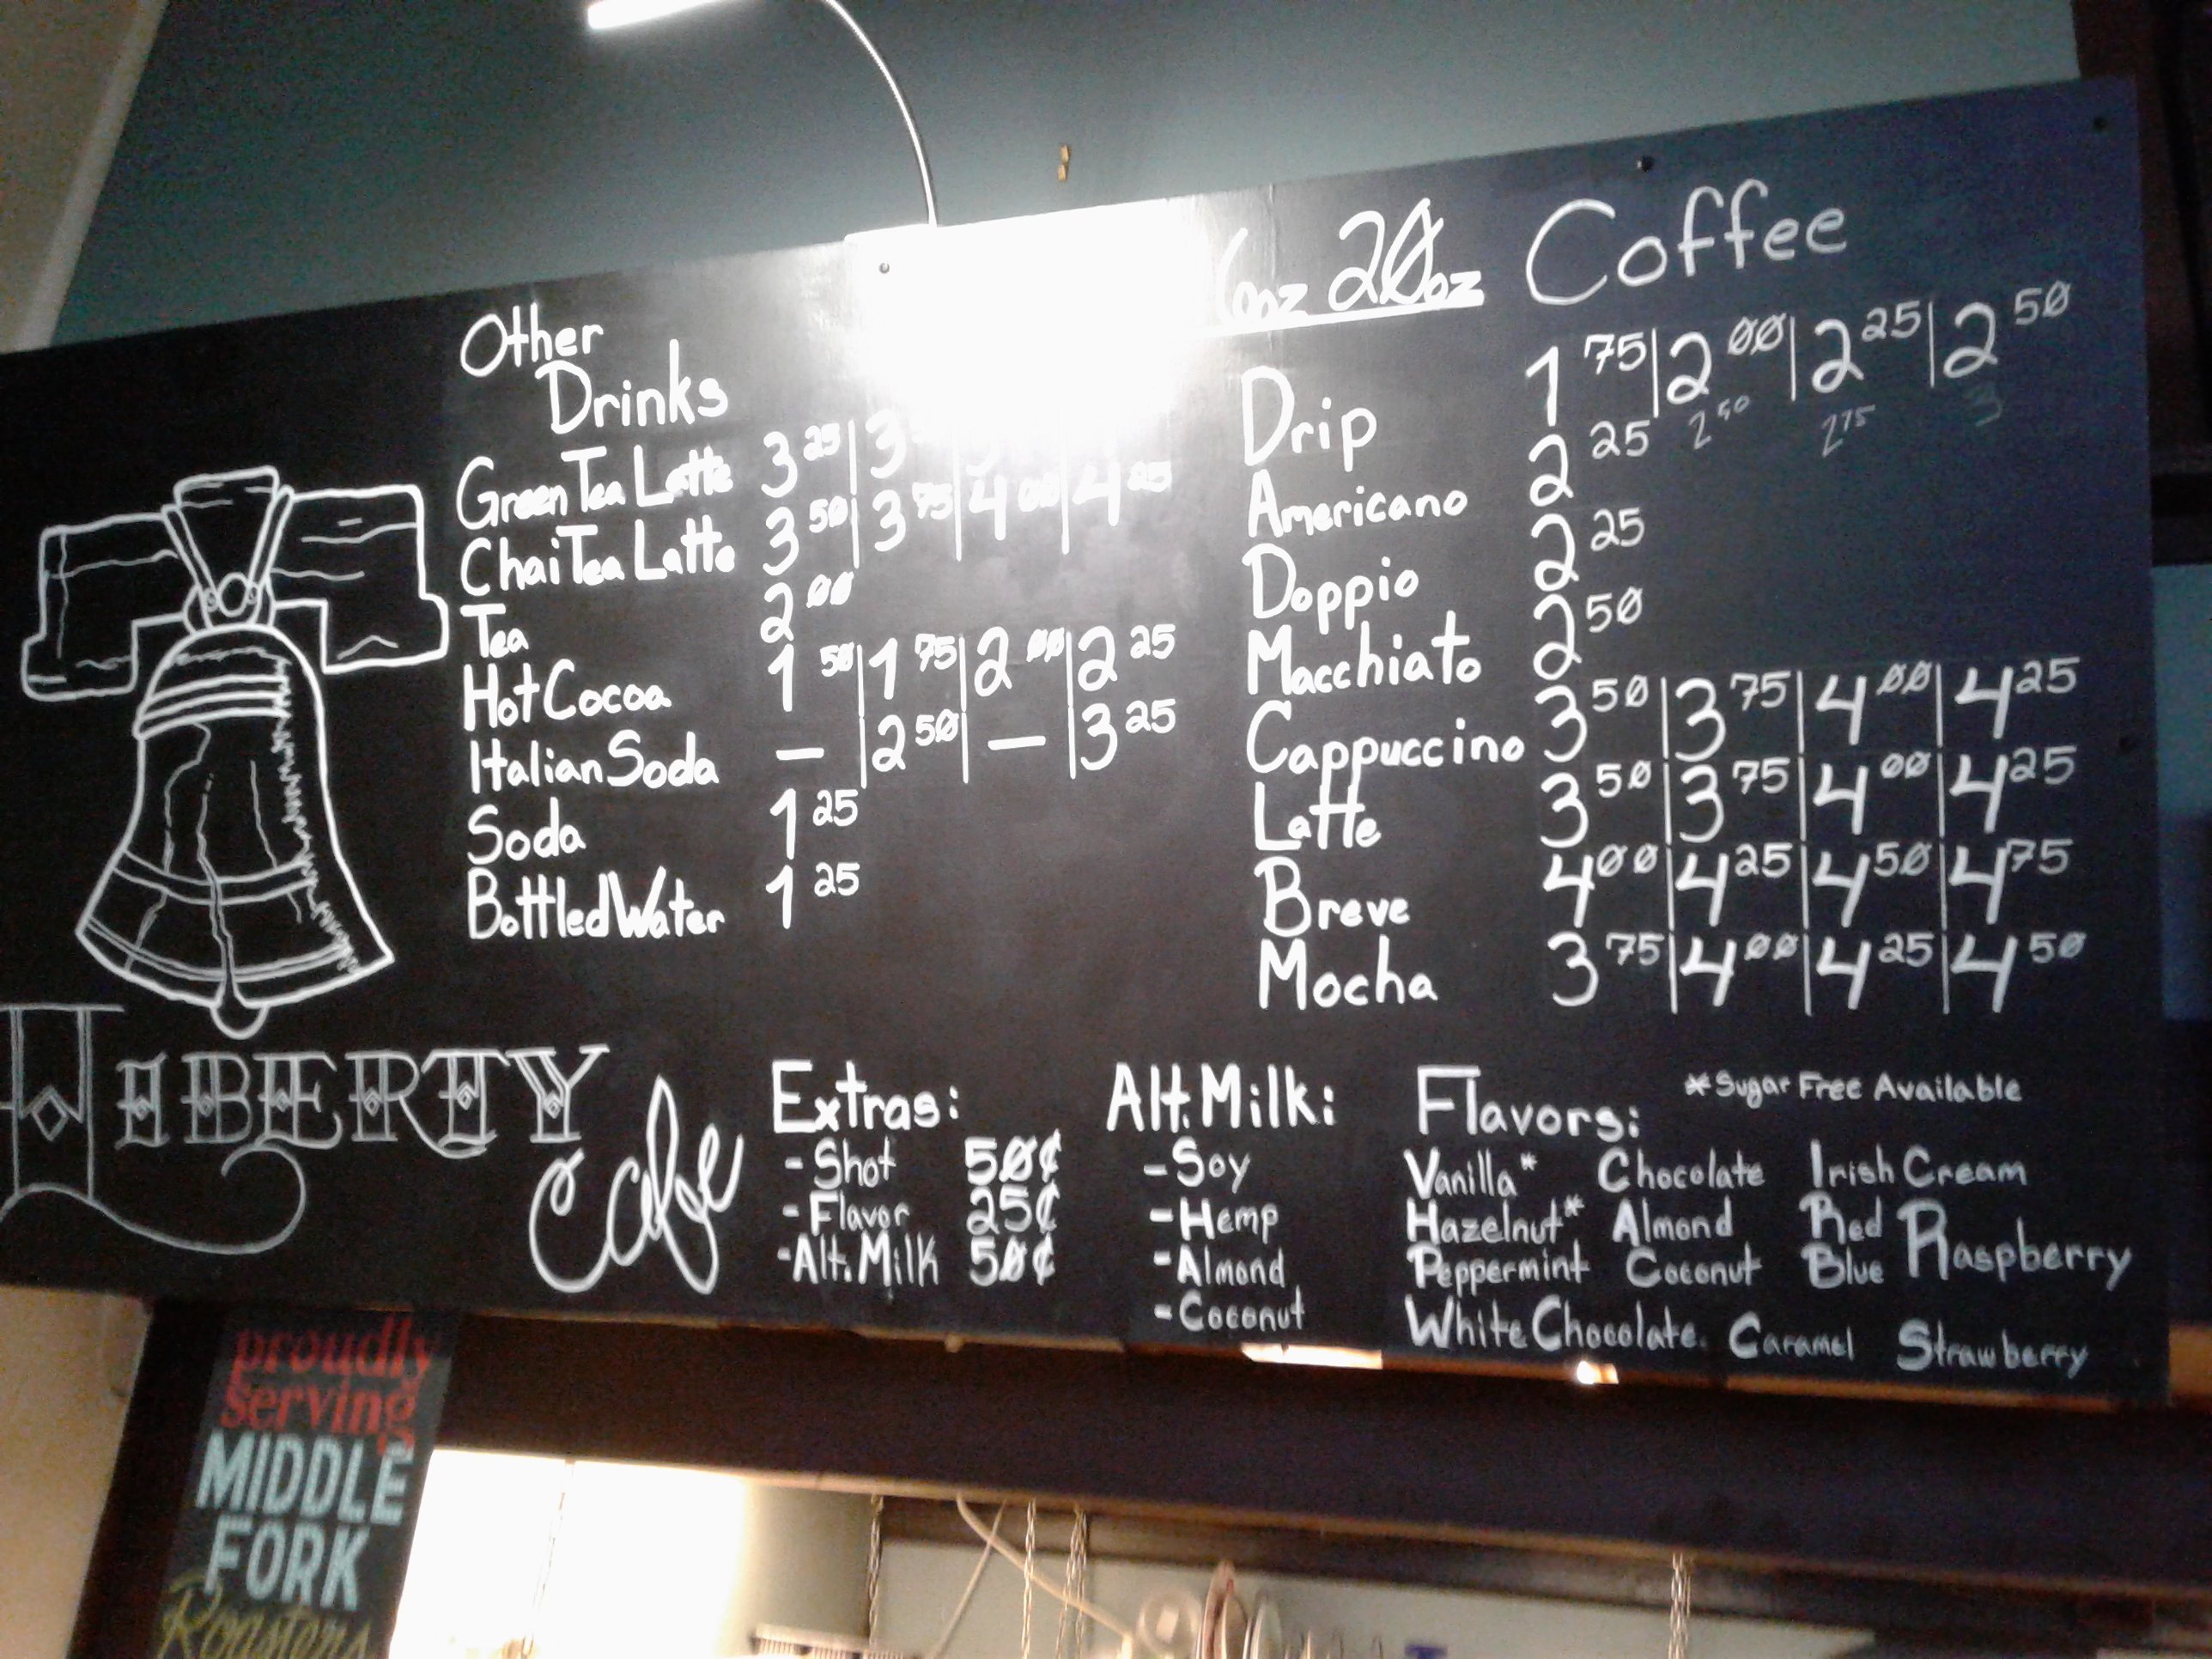 6oz 20oz Coffee
Other
Drinks
Green Tea Latte 3 25 | 3
Chai Tea Latte 3 50 | 3 75 | 4 00 | 4 25
Tea 2 00
Hot Cocoa 1 50 | 1 75 | 2 00 | 2 25
Italian Soda — | 2 50 | — | 3 25
Soda 1 25
Bottled Water 1 25
Drip 1 75 | 2 00 | 2 25 | 2 50
Americano 2 25 2 50 2 75 3
Doppio 2 25
Macchiato 2 50
Cappuccino 3 50 | 3 75 | 4 00 | 4 25
Latte 3 50 | 3 75 | 4 00 | 4 25
Breve 4 00 | 4 25 | 4 50 | 4 75
Mocha 3 75 | 4 00 | 4 25 | 4 50
LIBERTY
Cafe
Extras:
- Shot 50¢
- Flavor 25¢
- Alt. Milk 50¢
Alt. Milk:
- Soy
- Hemp
- Almond
- Coconut
Flavors: *Sugar Free Available
Vanilla* Chocolate Irish Cream
Hazelnut* Almond Red Raspberry
Peppermint Coconut Blue
White Chocolate. Caramel Strawberry
proudly
serving
MIDDLE
FORK
Roasters